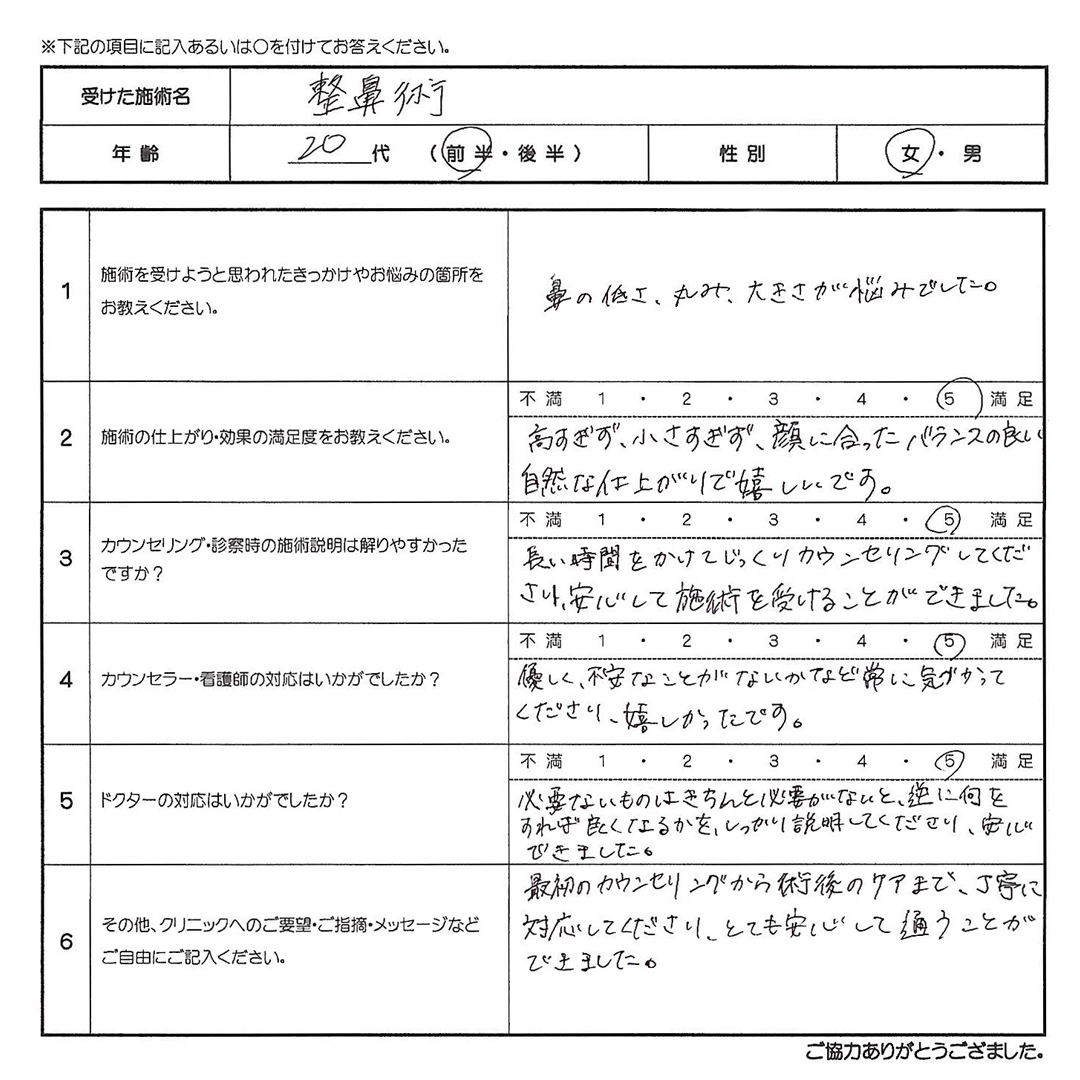 ※下記の項目に記入あるいは〇を付けてお答えください。
受けた施術名 整鼻術
年齢 20代 (前半・後半) 性別 女・男
1 施術を受けようと思われたきっかけやお悩みの箇所を
お教えください。
鼻の低さ、丸み、大きさが悩みでした。
2 施術の仕上がり・効果の満足度をお教えください。
不満 1 ・ 2 ・ 3 ・ 4 ・ 5 満足
高すぎず、小さすぎず、顔に合ったバランスの良い
自然な仕上がりで嬉しいです。
3 カウンセリング・診察時の施術説明は解りやすかった
ですか?
不満 1 ・ 2 ・ 3 ・ 4 ・ 5 満足
長い時間をかけてじっくりカウンセリングしてくだ
さり、安心して施術を受けることができました。
4 カウンセラー・看護師の対応はいかがでしたか?
不満 1 ・ 2 ・ 3 ・ 4 ・ 5 満足
優しく、不安なことがないかなど常に気づかって
くださり、嬉しかったです。
5 ドクターの対応はいかがでしたか?
不満 1 ・ 2 ・ 3 ・ 4 ・ 5 満足
必要ないものはきちんと必要がないと、逆に何を
すれば良くなるかを、しっかり説明してくださり、安心
できました。
6 その他、クリニックへのご要望・ご指摘・メッセージなど
ご自由にご記入ください。
最初のカウンセリングから術後のケアまで、丁寧に
対応してくださり、とても安心して通うことが
できました。
ご協力ありがとうござました。